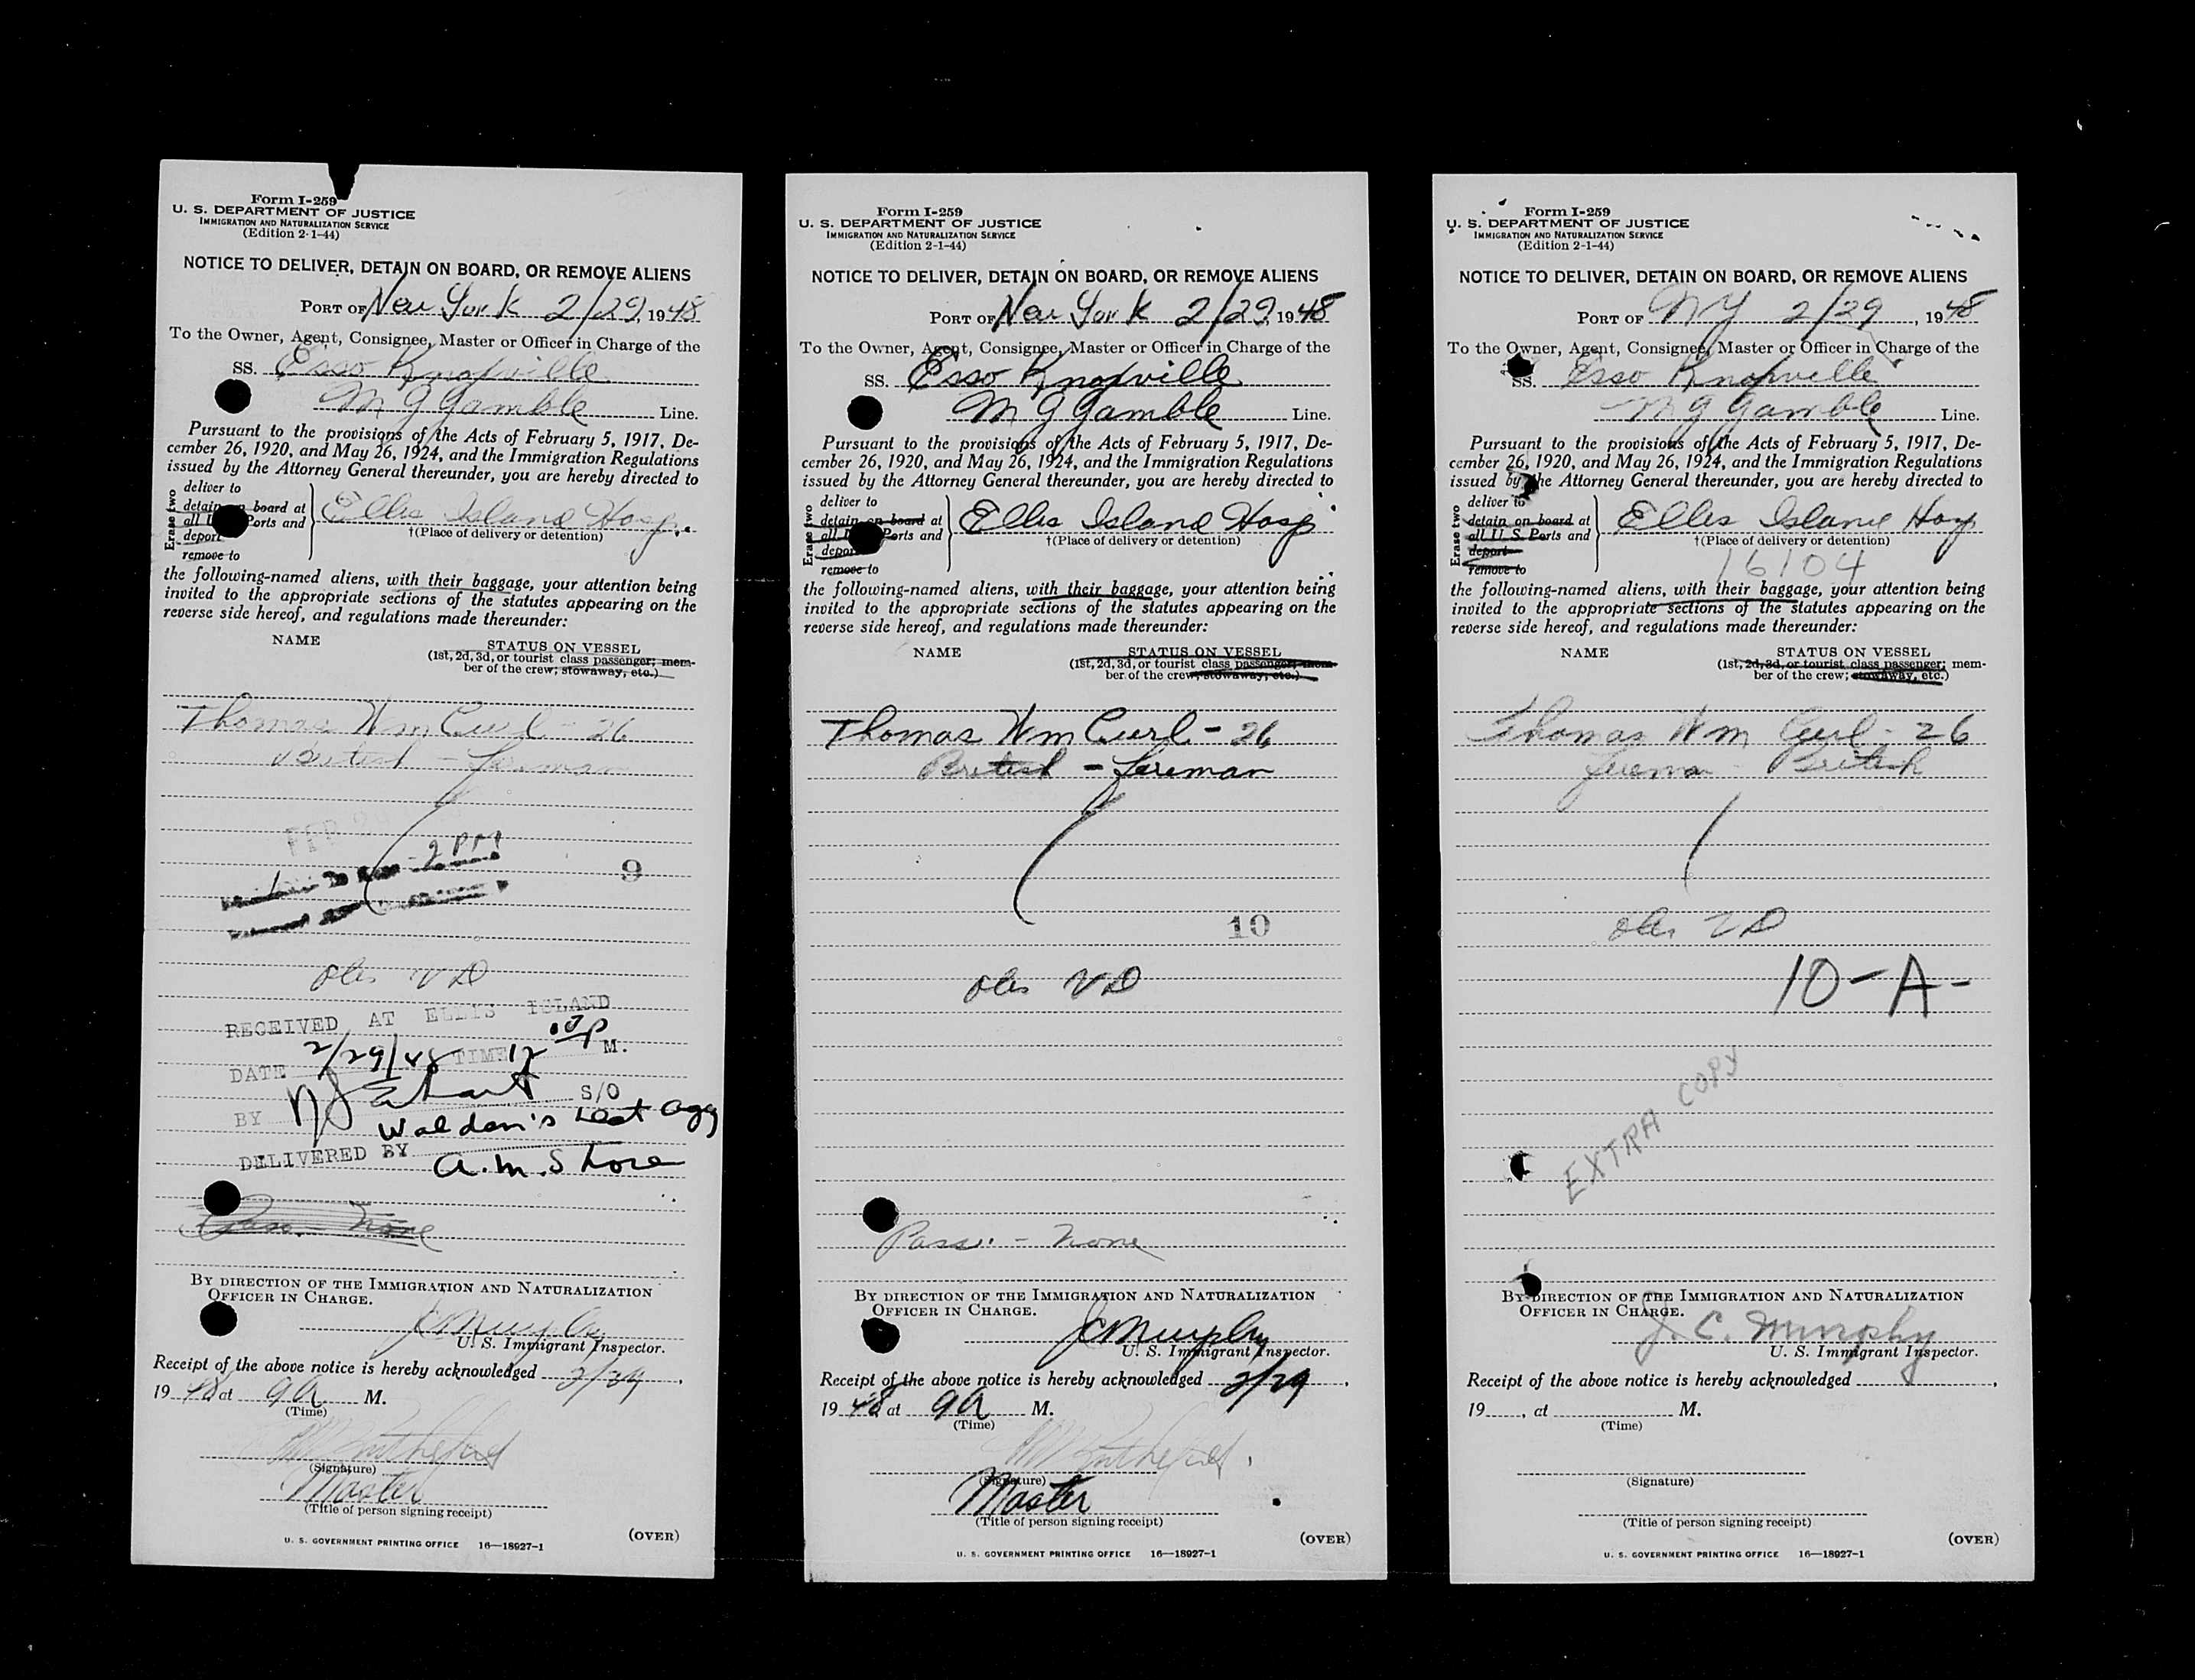 Form I-259
U. S. DEPARTMENT OF JUSTICE
IMMIGRATION AND NATURALIZATION SERVICE
(Edition 2-1-44)
NOTICE TO DELIVER, DETAIN ON BOARD, OR REMOVE ALIENS
PORT OF New York 2/29, 1948
To the Owner, Agent, Consignee, Master or Officer in Charge of the
SS. Esso Knoxville
M G Gamble Line.
Pursuant to the provisions of the Acts of February 5, 1917, De-
cember 26, 1920, and May 26, 1924, and the Immigration Regulations
issued by the Attorney General thereunder, you are hereby directed to
Erase two
deliver to
detain on board at
all U Ports and
deport
remove to
Ellis Island Hosp.
†(Place of delivery or detention)
the following-named aliens, with their baggage, your attention being
invited to the appropriate sections of the statutes appearing on the
reverse side hereof, and regulations made thereunder:
NAME STATUS ON VESSEL
(1st, 2d, 3d, or tourist class passenger; mem-
ber of the crew; stowaway, etc.)
Thomas Wm Curl - 26
British - Fireman
2 PM
9
VD
RECEIVED AT ELLIS ISLAND
DATE 2/29/48 TIME 12 M.
BY S/O
Waldon's
DELIVERED BY A.M. Shore
Pass. - None
BY DIRECTION OF THE IMMIGRATION AND NATURALIZATION
OFFICER IN CHARGE.
JC Murphy
U. S. Immigrant Inspector.
Receipt of the above notice is hereby acknowledged 2/29,
1948 at 9 A M.
(Time)
(Signature)
Master
(Title of person signing receipt)
(OVER)
U. S. GOVERNMENT PRINTING OFFICE 16—18927-1
Form I-259
U. S. DEPARTMENT OF JUSTICE
IMMIGRATION AND NATURALIZATION SERVICE
(Edition 2-1-44)
NOTICE TO DELIVER, DETAIN ON BOARD, OR REMOVE ALIENS
PORT OF New York 2/29, 1948
To the Owner, Agent, Consignee, Master or Officer in Charge of the
SS. Esso Knoxville
M G Gamble Line.
Pursuant to the provisions of the Acts of February 5, 1917, De-
cember 26, 1920, and May 26, 1924, and the Immigration Regulations
issued by the Attorney General thereunder, you are hereby directed to
Erase two
deliver to
detain on board at
all Ports and
deport
remove to
Ellis Island Hosp
†(Place of delivery or detention)
the following-named aliens, with their baggage, your attention being
invited to the appropriate sections of the statutes appearing on the
reverse side hereof, and regulations made thereunder:
NAME STATUS ON VESSEL
(1st, 2d, 3d, or tourist class passenger; mem-
ber of the crew; stowaway, etc.)
Thomas Wm Curl - 26
British - Fireman
10
VD
Pass. - None
BY DIRECTION OF THE IMMIGRATION AND NATURALIZATION
OFFICER IN CHARGE.
JC Murphy
U. S. Immigrant Inspector.
Receipt of the above notice is hereby acknowledged 2/29,
1948 at 9 A M.
(Time)
(Signature)
Master
(Title of person signing receipt)
(OVER)
U. S. GOVERNMENT PRINTING OFFICE 16—18927-1
Form I-259
U. S. DEPARTMENT OF JUSTICE
IMMIGRATION AND NATURALIZATION SERVICE
(Edition 2-1-44)
NOTICE TO DELIVER, DETAIN ON BOARD, OR REMOVE ALIENS
PORT OF NY 2/29, 1948
To the Owner, Agent, Consignee, Master or Officer in Charge of the
SS. Esso Knoxville
M G Gamble Line.
Pursuant to the provisions of the Acts of February 5, 1917, De-
cember 26, 1920, and May 26, 1924, and the Immigration Regulations
issued by the Attorney General thereunder, you are hereby directed to
Erase two
deliver to
detain on board at
all U. S. Ports and
deport
remove to
Ellis Island Hosp
†(Place of delivery or detention)
16104
the following-named aliens, with their baggage, your attention being
invited to the appropriate sections of the statutes appearing on the
reverse side hereof, and regulations made thereunder:
NAME STATUS ON VESSEL
(1st, 2d, 3d, or tourist class passenger; mem-
ber of the crew; stowaway, etc.)
Thomas Wm Curl - 26
Fireman - British
VD
10-A-
EXTRA COPY
BY DIRECTION OF THE IMMIGRATION AND NATURALIZATION
OFFICER IN CHARGE.
J. C. Murphy
U. S. Immigrant Inspector.
Receipt of the above notice is hereby acknowledged ,
19 , at M.
(Time)
(Signature)
(Title of person signing receipt)
(OVER)
U. S. GOVERNMENT PRINTING OFFICE 16—18927-1